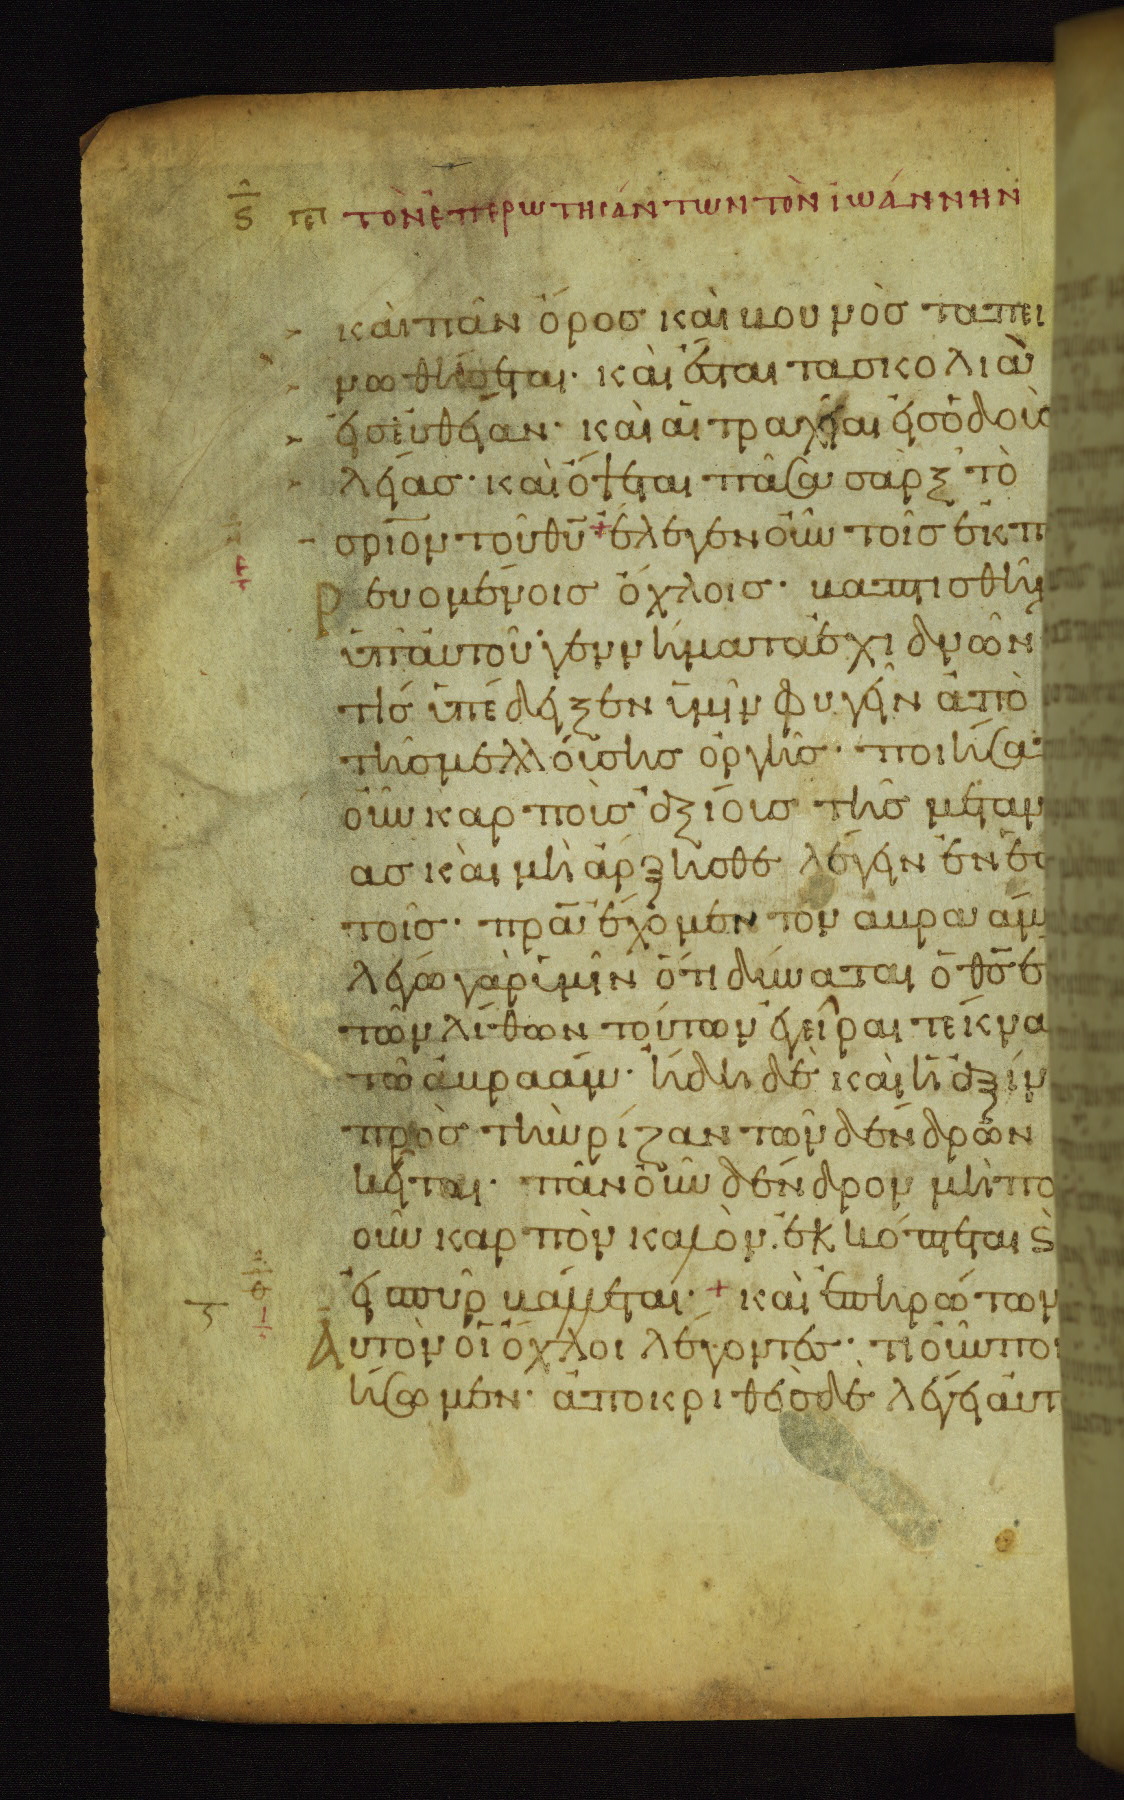 Ϛ πε τὸν ἐπερωτησάντων τὸν ἰωάννην
καὶ πᾶν ὄρος καὶ βουνὸς ταπει
νωθήσεται· καὶ ἔσται τα σκολιὰ
εἰς εὐθείαν· καὶ αἱ τραχεῖαι εἰς ὁδοὺς
λείας· καὶ ὄψεται πᾶσα σὰρξ τὸ
σριον τοῦ θυ + ἔλεγεν οὖν τοῖς ἐκπ
ρευομένοις ὄχλοις· βαπτισθῆν
ὑπ' αὐτοῦ· γεννήματα ἐχιδνῶν
τίς ὑπέδειξεν ὑμῖν φυγεῖν ἀπὸ
τῆς μελλούσης ὀργῆς· ποιήσα
οὖν καρποὺς ἀξίους τῆς μεταν
ας καὶ μὴ ἄρξησθε λέγειν ἐν ἑα
τοῖς· πρα ἔχομεν τὸν αβρααμ
λέγω γὰρ ὑμῖν ὅτι δύναται ὁ θς ἐ
τῶν λίθων τούτων ἐγεῖραι τέκνα
τῶ ἀβραάμ· ἤδη δὲ καὶ ἡ ἀξίν
πρὸς τὴν ρίζαν τῶν δένδρων
κεῖται· πᾶν οὖν δένδρον μὴ πο
οῦν καρπὸν καλὸν ἐκκόπτεται ϗ
εἰς πῦρ βάλλεται· + καὶ ἐπηρώτων
Αὐτὸν οἱ ὄχλοι λέγοντες· τί οὖν ποι
ήσωμεν· ἀποκριθεὶς δὲ λέγει αὐτ